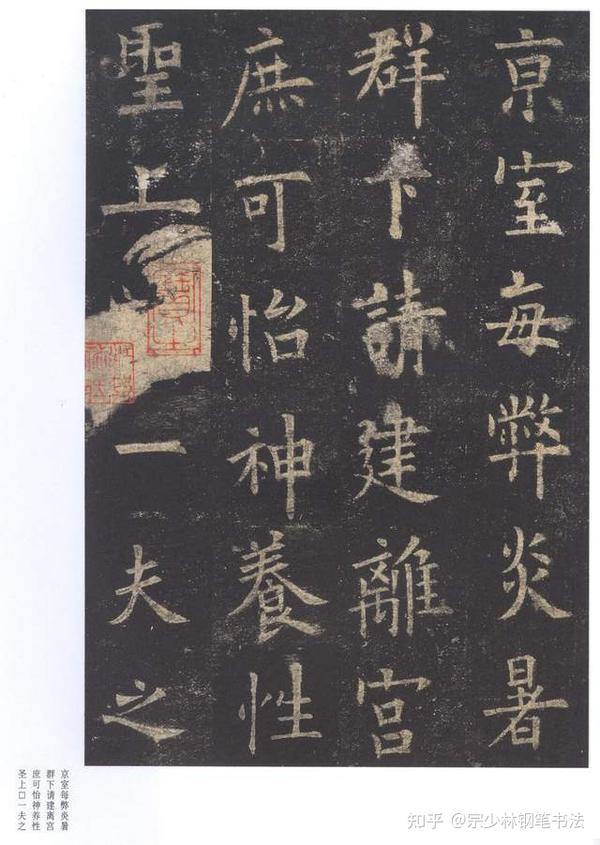 京室每弊炎暑
群下請建離宮
庶可怡神養性
聖上一夫之
京室每弊炎暑
群下请建离宫
庶可怡神养性
圣上□一夫之
知乎 @宗少林钢笔书法